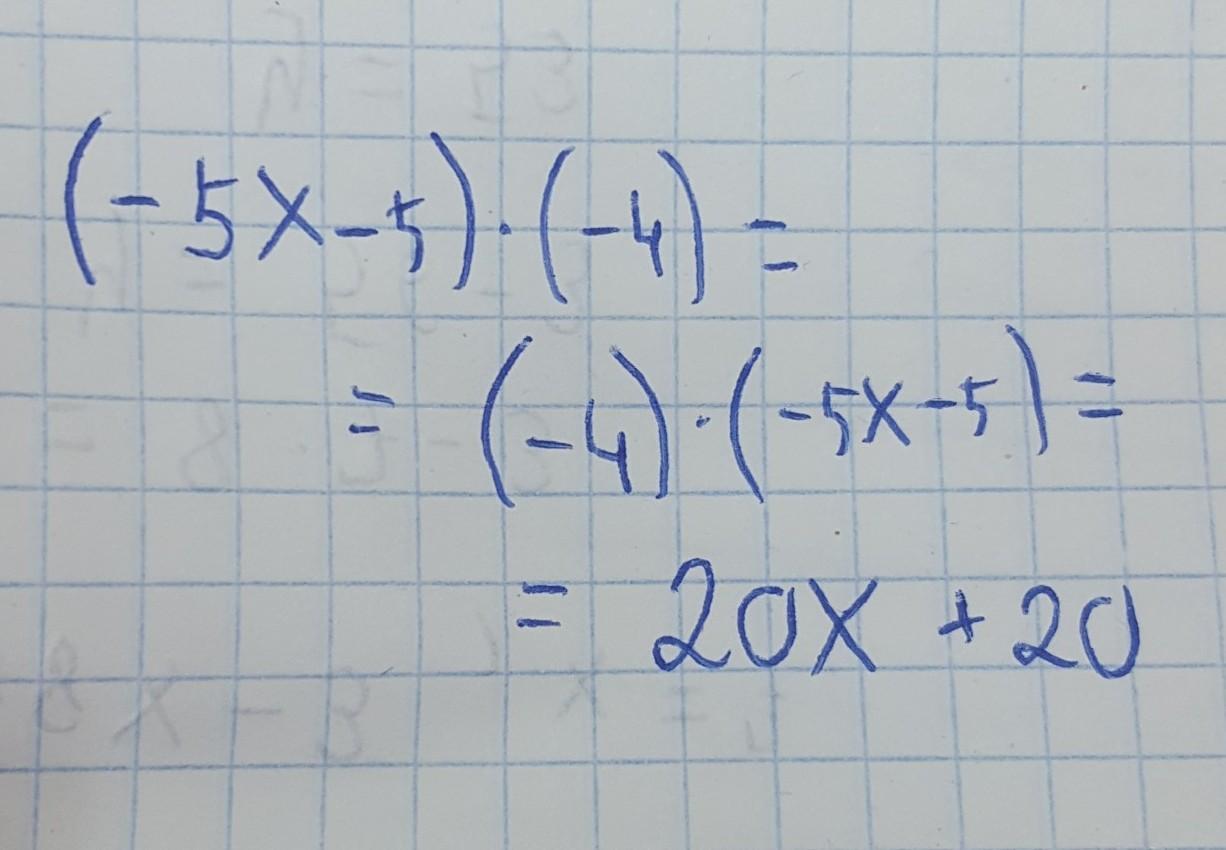 (-5x-5)·(-4)=
=(-4)·(-5x-5)=
=20x+20